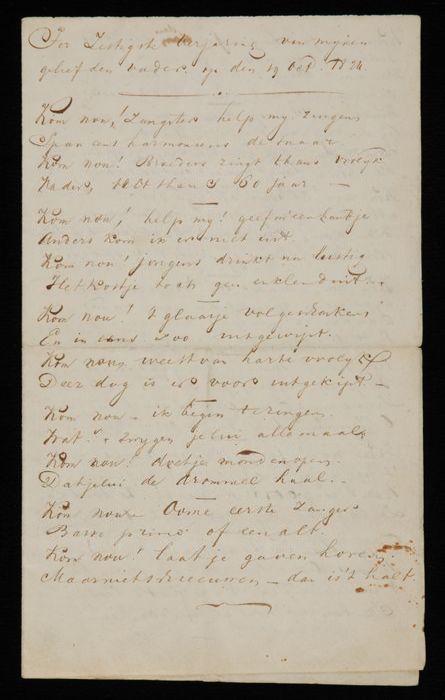 Ter Zestigste verjaring van mijnen
geliefden vader op den 19 Oct. 1824
Kom nou! Zangster help my zingen
Span eens harmonieus de snaar
Kom nou! Broeders zingt thans vrolyk
Vader, is thans 60 jaar —
Kom nou! help my! geef m'een handje
Anders kom ik er niet uit
Kom nou! jongens drinkt nu lustig
Het kostje toch geen enklen duit
Kom nou! 't glaasje volgeschonken
En in eens zoo uitgewipt.
Kom nou, weest van harte vrolyk
Deez dag is er voor uitgekipt —
Kom nou — ik begin te zingen.
Wat? zwygen jelui allemaal,
Kom nou! doetje monden open,
Dat jelui de drommel haal.
Kom nou — Oome eerste Zanger
Basso primo of een alt.
Kom nou! laat je gaven hooren,
Maar niet schreeuwen — dan is 't halt.